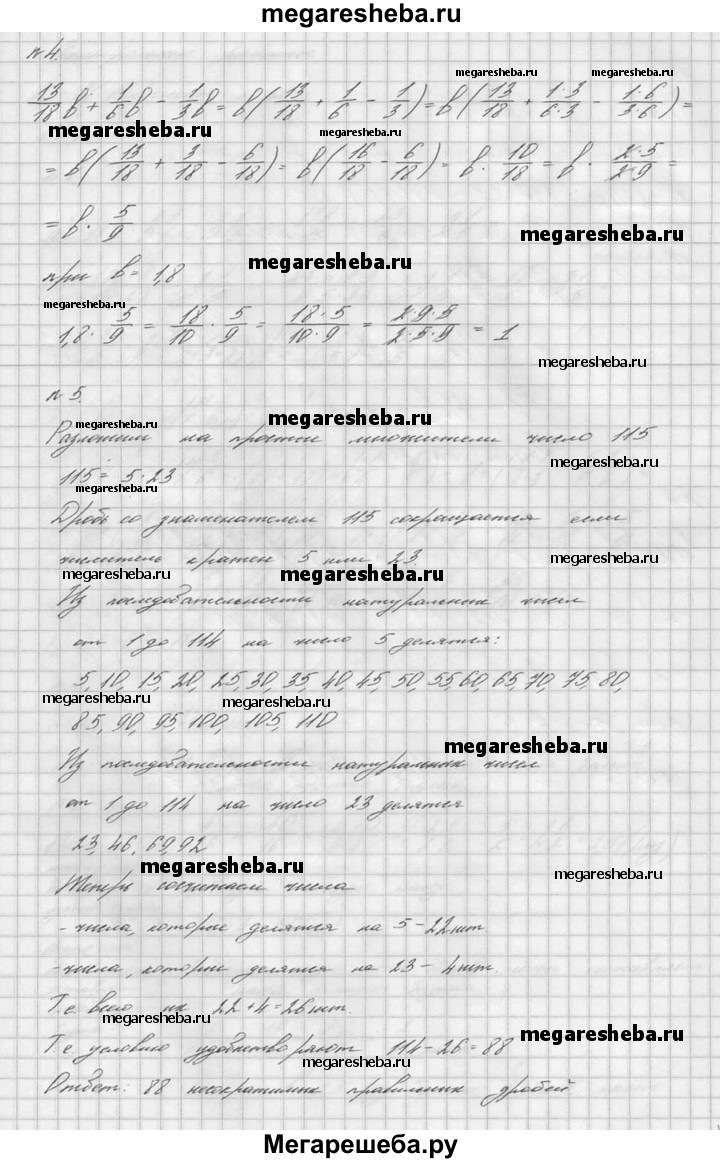 megaresheba.ru
№ 4.
megaresheba.ru
13/18 b + 1/6 b - 1/3 b = b(13/18 + 1/6 - 1/3) = b(13/18 + 1·3/6·3 - 1·6/3·6) =
megaresheba.ru megaresheba.ru
= b(13/18 + 3/18 - 6/18) = b(16/18 - 6/18) = b · 10/18 = b · 2·5/2·9 =
= b · 5/9
megaresheba.ru
при b = 1,8
megaresheba.ru
megaresheba.ru
1,8 · 5/9 = 18/10 · 5/9 = 18·5/10·9 = 2·9·5/2·5·9 = 1
megaresheba.ru
№ 5.
megaresheba.ru megaresheba.ru
Разложим на простые множители число 115
megaresheba.ru
115 = 5·23
megaresheba.ru
Дробь со знаменателем 115 сокращается если
числитель кратен 5 или 23.
megaresheba.ru
megaresheba.ru megaresheba.ru
Из последовательности натуральных чисел
от 1 до 114 на число 5 делятся:
5, 10, 15, 20, 25, 30, 35, 40, 45, 50, 55, 60, 65, 70, 75, 80,
megaresheba.ru megaresheba.ru
85, 90, 95, 100, 105, 110
megaresheba.ru
Из последовательности натуральных чисел
от 1 до 114 на число 23 делятся
23, 46, 69, 92
megaresheba.ru megaresheba.ru
Теперь сосчитаем числа
- числа, которые делятся на 5 - 22 шт.
- числа, которые делятся на 23 - 4 шт.
Т.е. всего их 22 + 4 = 26 шт.
megaresheba.ru
megaresheba.ru
Т.е. условию удовлетворяют 114 - 26 = 88
megaresheba.ru
Ответ: 88 несократимых правильных дробей
Мегарешеба.ру